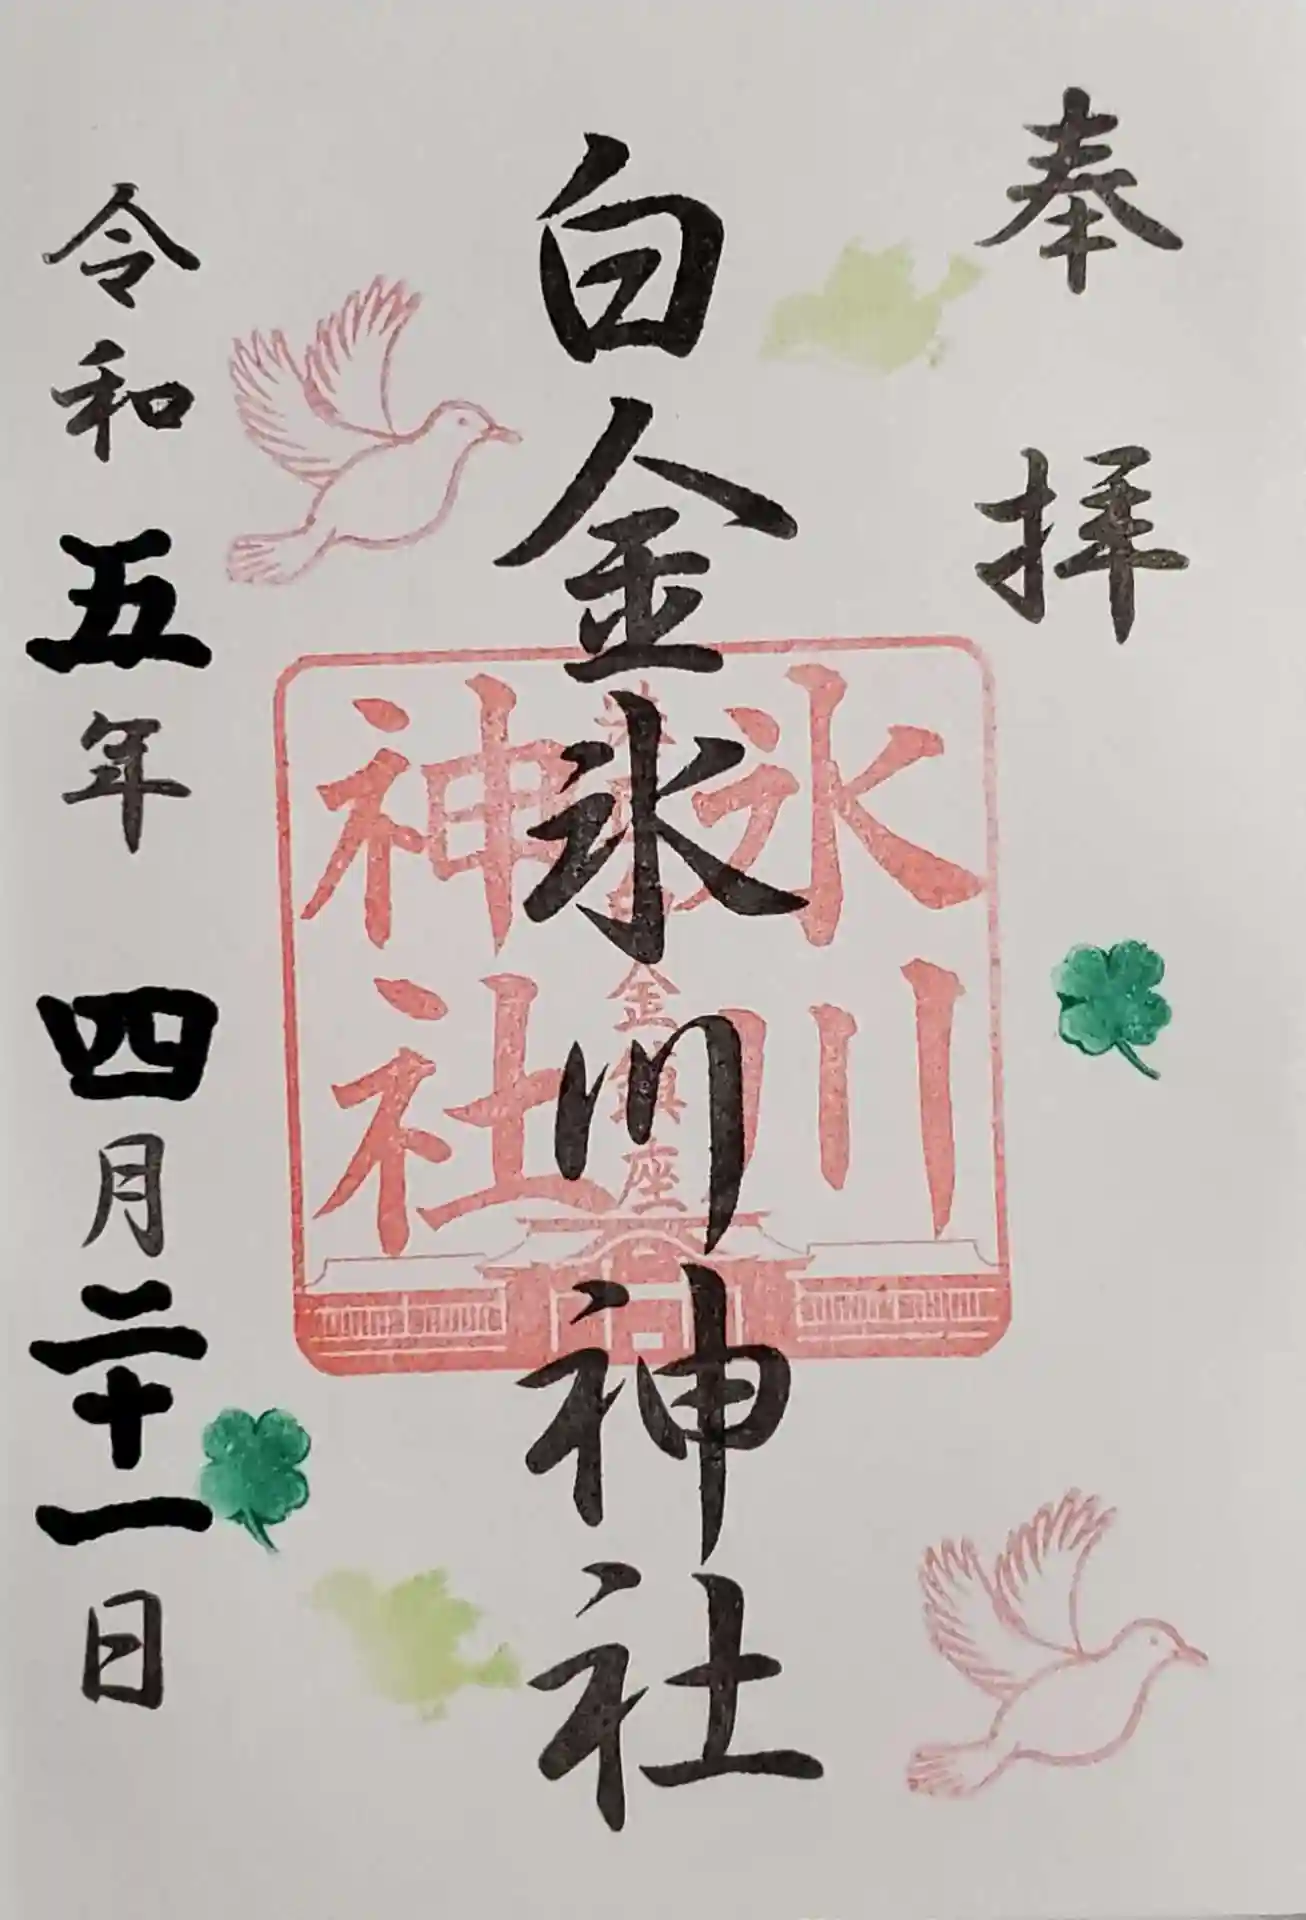 奉拝
白金氷川神社
氷川
神社
金鎮座
令和五年四月二十一日